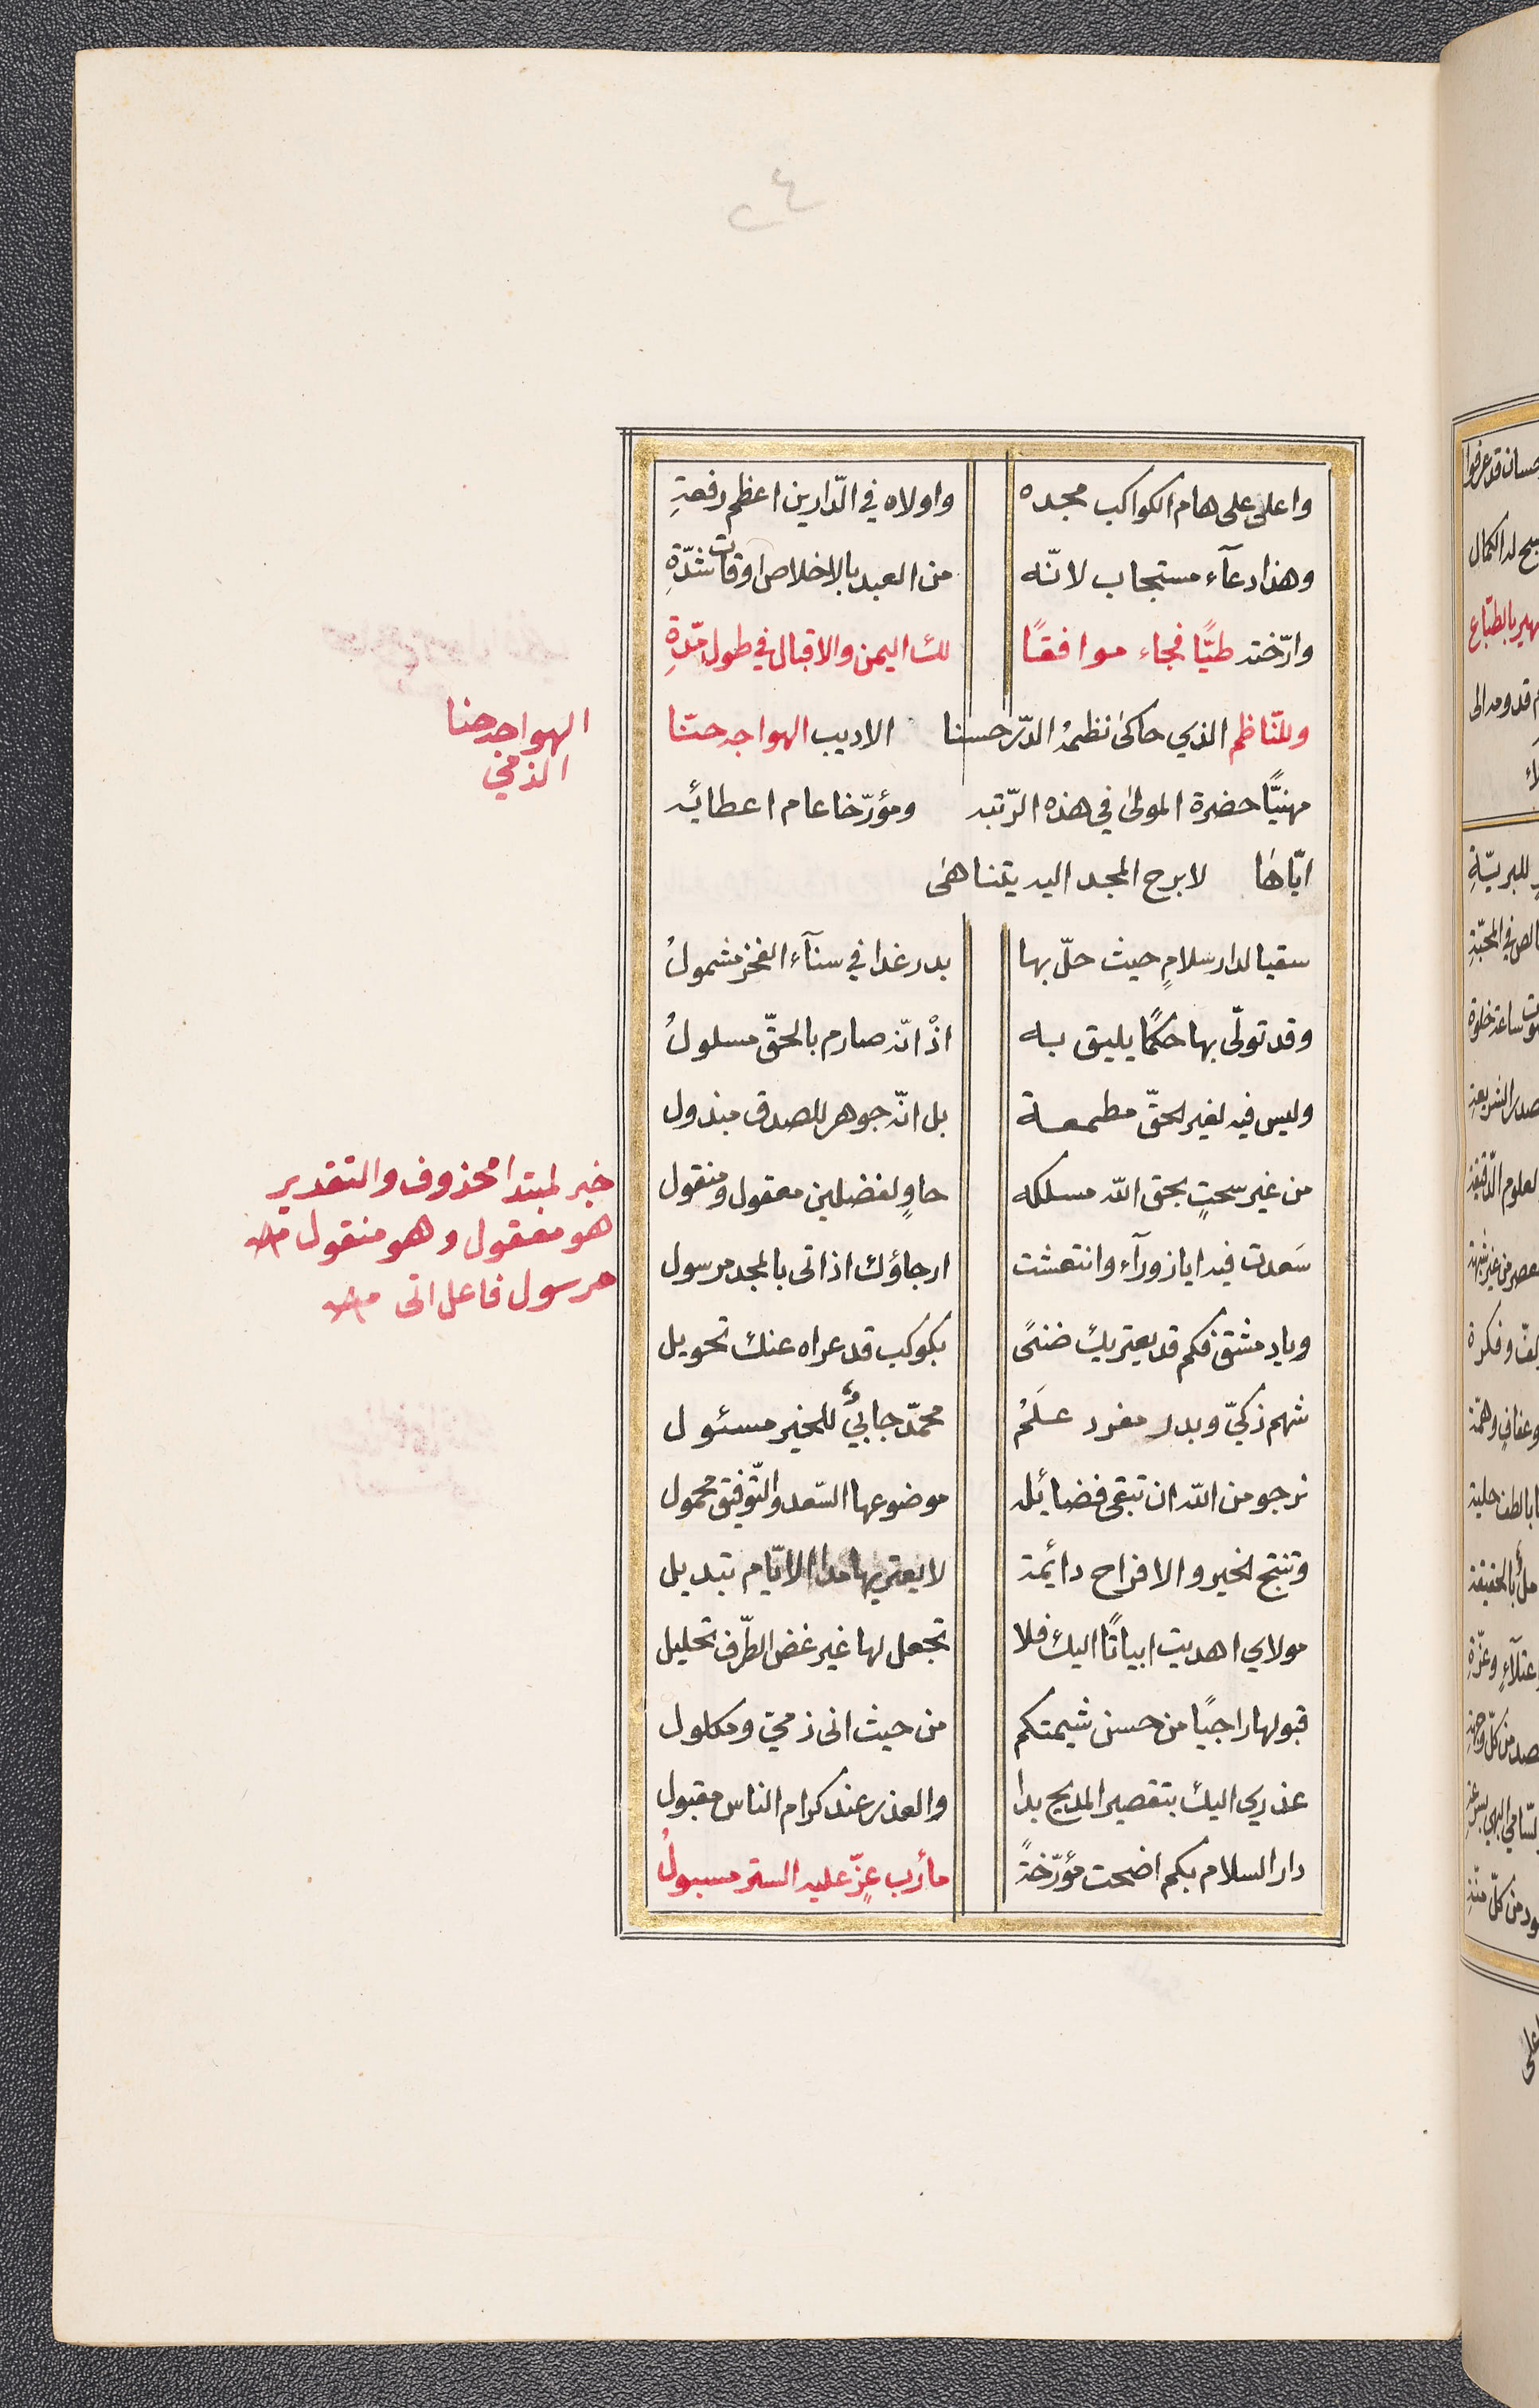 واعلى على هام الكواكب مجده واولاه في الدّارين اعظم رفعةِ
وهذا دعآء مستجاب لانّه من العبد بالاخلاص اوقات شدّةِ
وارّخته طيًّا فجاء موافقًا لك اليمن والاقبال في طول مدّةِ
وللنّاظم الذي حاكى نظمهُ الدّر حسنا الاديب الهواجه حنّا
مهنيًّا حضرة المولى في هذه الرّتبه ومؤرّخا عام اعطائه
ايّاها لا برح المجد اليه يتناهى
سقيا لدار سلامٍ حيث حلّ بها بدر غدا في سنآء الفخر مشمولُ
وقد تولّى بها حكمًا يليق به اذْ انّه صارم بالحقّ مسلولُ
وليس فيه لغير الحقّ مطمعة بل انّه جوهر للصدق مبذول
من غير سحتٍ بحق الله مسلكه حاوٍ لفضلين معقول ومنقول
سَعدت فيه ايا زورآء وانتعشت ارجاؤك اذ اتى بالمجد مرسول
ويا دمشق فكم قد يعتريك ضنىً بكوكب قد عراه عنك تحويل
شهم ذكيّ وبدر مفرد علَمُ محمّد جابيٌ للخير مسئول
نرجو من الله ان تبقى فضائله موضوعها السّعد والتّوفيق محمول
وتنتج الخير والافراح دائمة لا يعتريها مدا الايّام تبديل
مولاي اهديت ابياتًا اليك فلا تجعل لها غير غض الطّرف تحليل
قبولها راجيًا من حسن شيمتكم من حيث انى ذمّي ومكلول
عذري اليك بتقصير المديح بدا والعذر عند كرام الناس مقبول
دار السلام بكم اضحت مؤرّخةً مأرب عزّ عليه الستر مسبولُ
الهواجه حنا
الذمي
خبر لمبتدا محذوف والتقدير
هو معقول وهو منقول
مرسول فاعل اتى